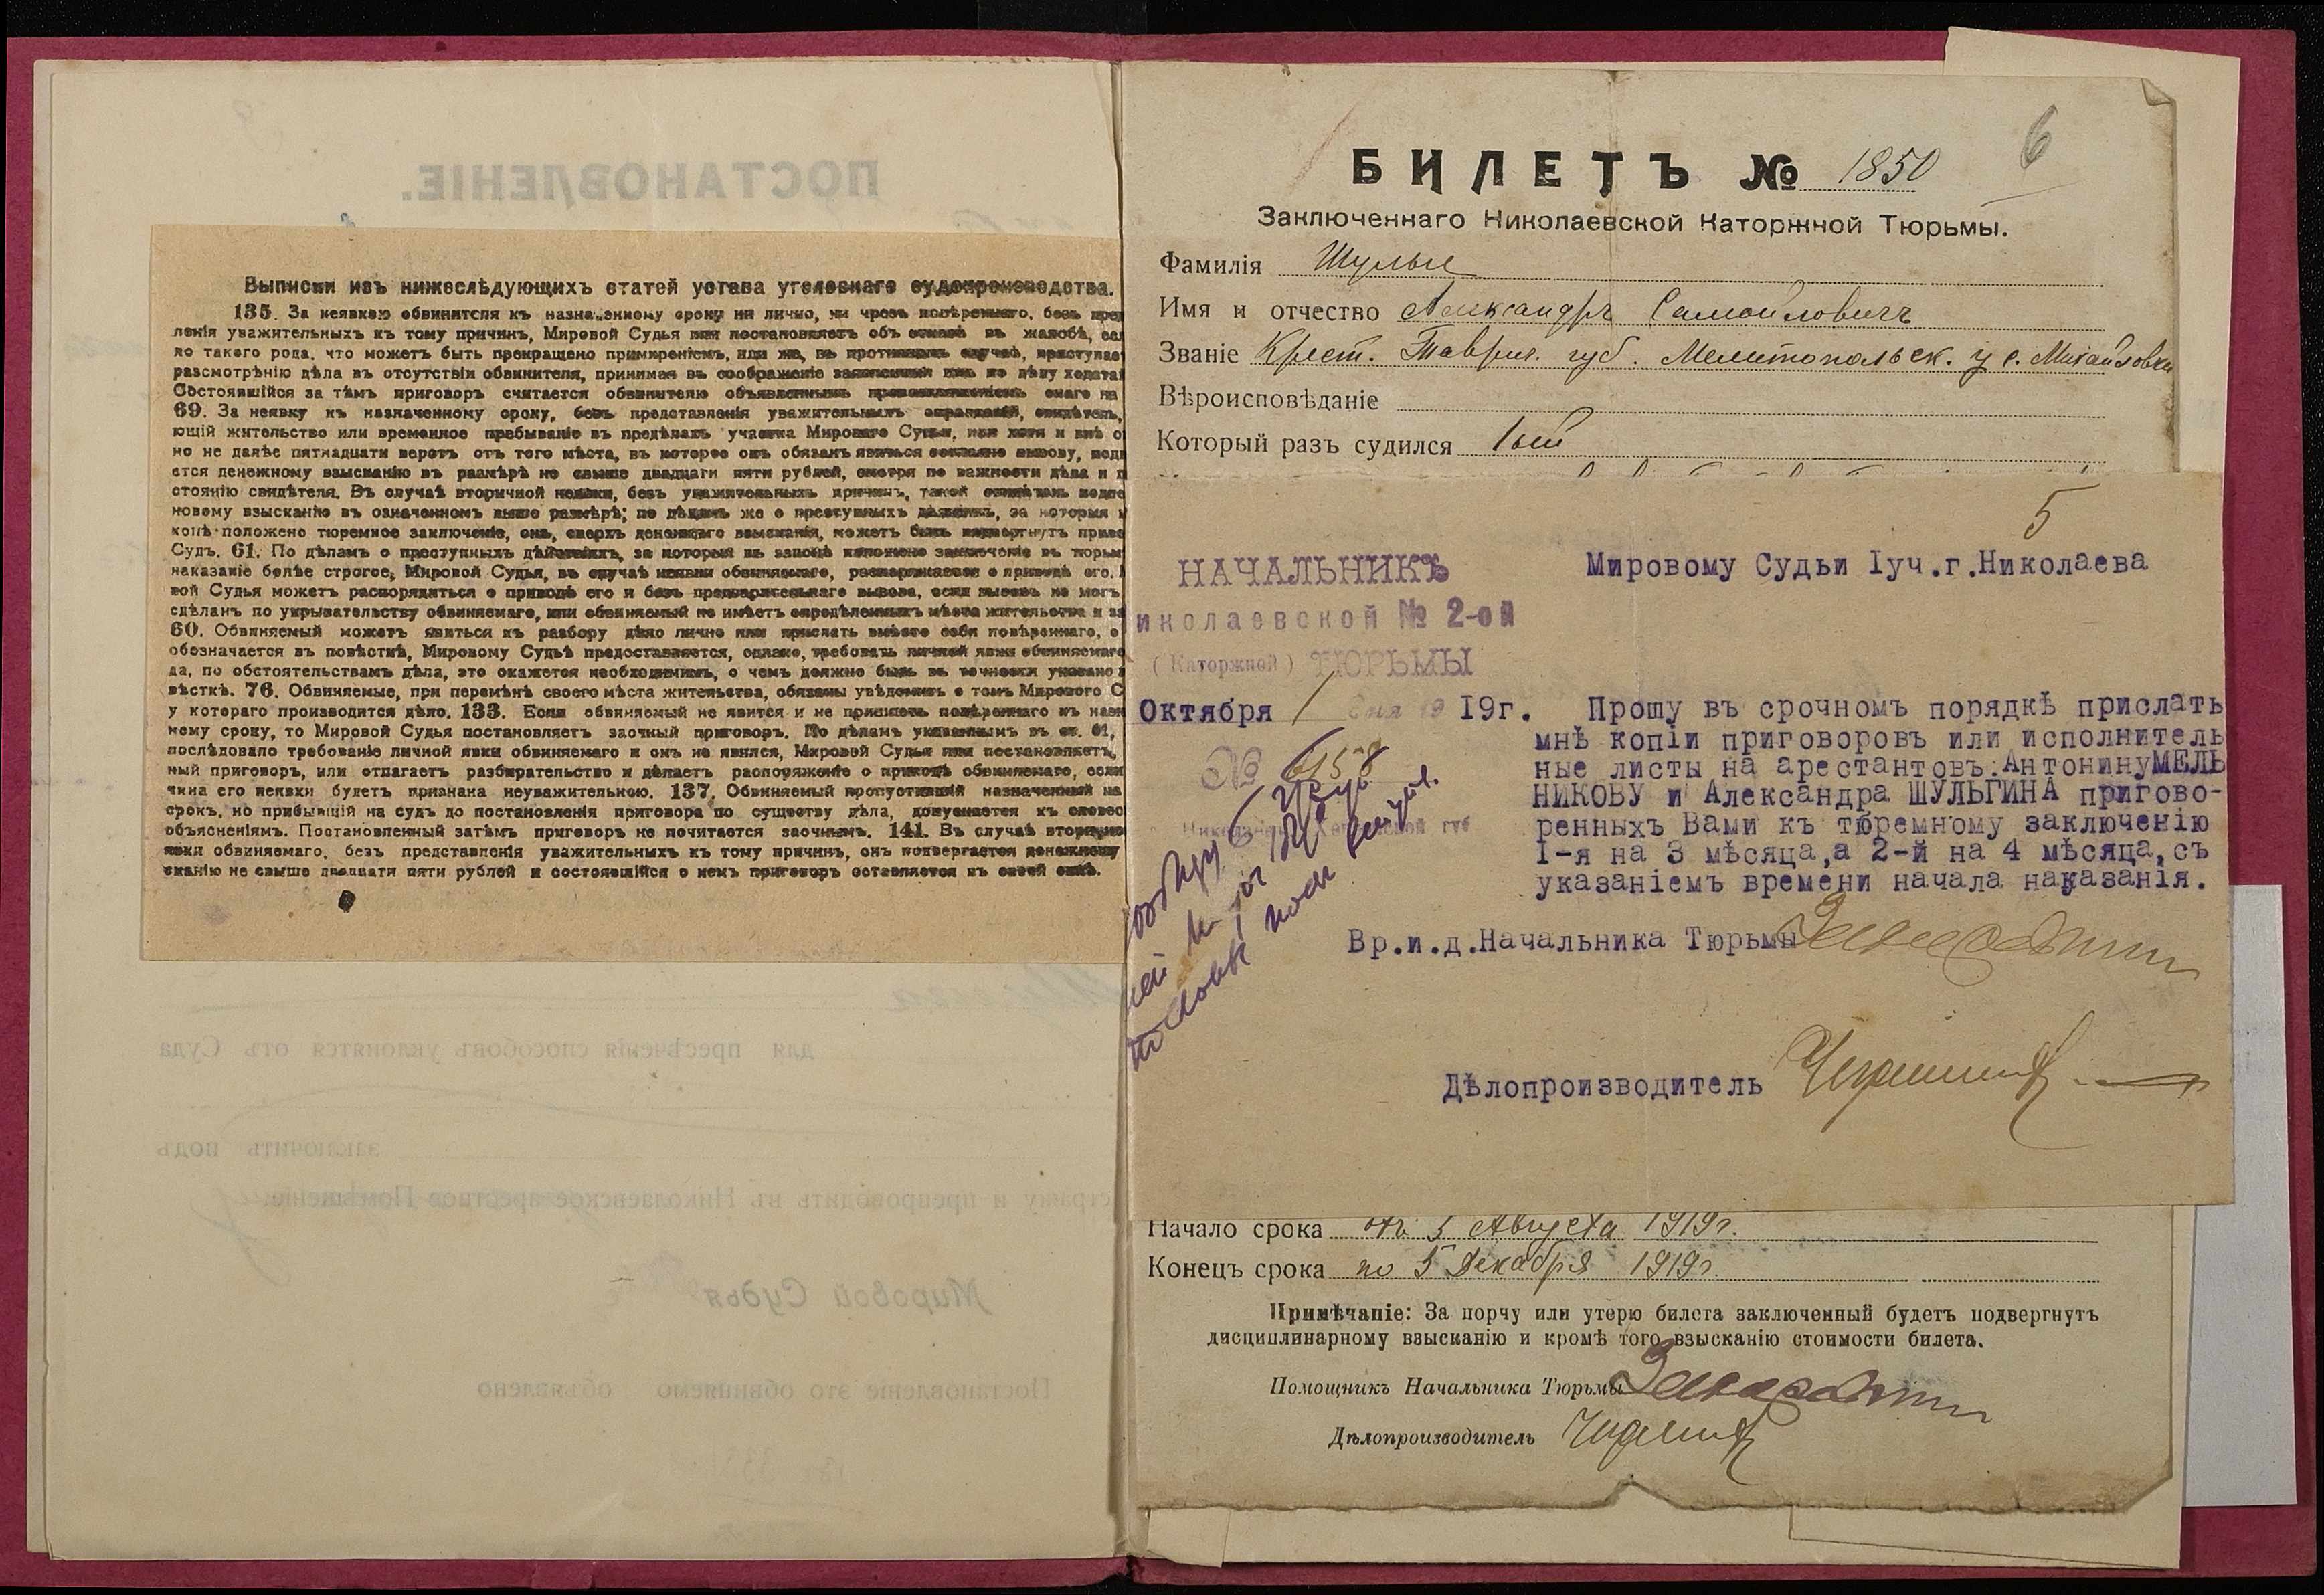 ПОСТАНОВЛЕНІЕ.
Выписки изъ нижеслѣдующихъ статей устава уголовнаго судопроизводства.
135. За неявкою обвинителя къ назначенному сроку ни лично, ни чрезъ повѣреннаго, безъ пред
ленія уважительныхъ къ тому причинъ, Мировой Судья или постановляетъ объ отказѣ въ жалобѣ, есл
ло такого рода, что можетъ быть прекращено примиреніемъ, или же, въ противномъ случаѣ, приступае
разсмотрѣнію дѣла въ отсутствіи обвинителя, принимая въ соображеніе заявленныя имъ по дѣлу ходата
Состоявшійся за тѣмъ приговоръ считается обвинителю объявленнымъ провозглашеніемъ онаго на
69. За неявку къ назначенному сроку, безъ представленія уважительныхъ оправданій, свидѣтель,
ющій жительство или временное пребываніе въ предѣлахъ участка Мирового Судьи, или хотя и внѣ о
но не далѣе пятнадцати верстъ отъ того мѣста, въ которое онъ обязанъ явиться согласно вызову, подв
ется денежному взысканію въ размѣрѣ не свыше двадцати пяти рублей, смотря по важности дѣла и п
стоянію свидѣтеля. Въ случаѣ вторичной неявки, безъ уважительныхъ причинъ, такой свидѣтель подве
новому взысканію въ означенномъ выше размѣрѣ; по дѣламъ же о преступныхъ дѣяніяхъ, за которыя
конѣ положено тюремное заключеніе, онъ, сверхъ денежнаго взысканія, можетъ быть подвергнутъ приво
Судъ. 61. По дѣламъ о преступныхъ дѣйствіяхъ, за которыя въ законѣ положено заключеніе въ тюрьм
наказаніе болѣе строгое, Мировой Судья, въ случаѣ неявки обвиняемаго, распоряжается о приводѣ его.
вой Судья можетъ распорядиться о приводѣ его и безъ предварительнаго вызова, если вызовъ не могъ
сдѣланъ по укрывательству обвиняемаго, или обвиняемый не имѣетъ опредѣленныхъ мѣста жительства и за
60. Обвиняемый можетъ явиться къ разбору дѣло лично или прислать вмѣсто себя повѣреннаго, о
обозначается въ повѣсткѣ, Мировому Судьѣ предоставляется, однако, требовать личной явки обвиняемаго
да, по обстоятельствамъ дѣла, это окажется необходимымъ, о чемъ должно быть въ точности указано
вѣсткѣ. 76. Обвиняемые, при перемѣнѣ своего мѣста жительства, обязаны увѣдомить о томъ Мирового С
у котораго производится дѣло. 133. Если обвиняемый не явится и не пришлетъ повѣреннаго къ назн
ному сроку, то Мировой Судья постановляетъ заочный приговоръ. По дѣламъ указаннымъ въ ст. 61,
послѣдовало требованіе личной явки обвиняемаго и онъ не явился, Мировой Судья или постановляетъ,
ный приговоръ, или отлагаетъ разбирательство и дѣлаетъ распоряженіе о приводѣ обвиняемаго, если
чина его неявки будетъ признана неуважительною. 137. Обвиняемый пропустившій назначенный на
срокъ, но прибывшій на судъ до постановленія приговора по существу дѣла, допускается къ словес
объясненіямъ. Постановленный затѣмъ приговоръ не почитается заочнымъ. 141. Въ случаѣ вторично
явки обвиняемаго, безъ представленія уважительныхъ къ тому причинъ, онъ подвергается денежному
сканію не свыше двадцати пяти рублей и состоявшійся о немъ приговоръ оставляется въ своей силѣ.
для пресѣченія способовъ уклонятся отъ Суда
заключить подъ
стражу и препроводить въ Николаевское арестное Помѣщеніе.
Мировой Судья
Постановленіе это обвиняемо объявлено
6
БИЛЕТЪ № 1850
Заключеннаго Николаевской Каторжной Тюрьмы.
Фамилія
Имя и отчество Александръ Самойловичъ
Званіе Крест. Таврич. губ. Мелитопольск. у с. Михайловки
Вѣроисповѣданіе
Который разъ судился 1ый
5
НАЧАЛЬНИКЪ
иколаевской № 2-ой
(Каторжной) ТЮРЬМЫ
Мировому Судьи Iуч.г.Николаева
Октября 1 дня 19 I9г.
№ 6158
Прошу въ срочномъ порядкѣ прислать
мнѣ копіи приговоровъ или исполнитель
ные листы на арестантовъ:АнтонинуМЕЛЬ
НИКОВУ и Александра ШУЛЬГИНА пригово-
ренныхъ Вами къ тюремному заключенію
I-я на 3 мѣсяца,а 2-й на 4 мѣсяца,съ
указаніемъ времени начала наказанія.
Вр.и.д.Начальника Тюрьмы
Дѣлопроизводитель
Начало срока отъ 5 Августа 1919г.
Конецъ срока по 5 Декабря 1919г.
Примѣчаніе: За порчу или утерю билета заключенный будетъ подвергнутъ
дисциплинарному взысканію и кромѣ того взысканію стоимости билета.
Помощникъ Начальника Тюрьмы
Дѣлопроизводитель